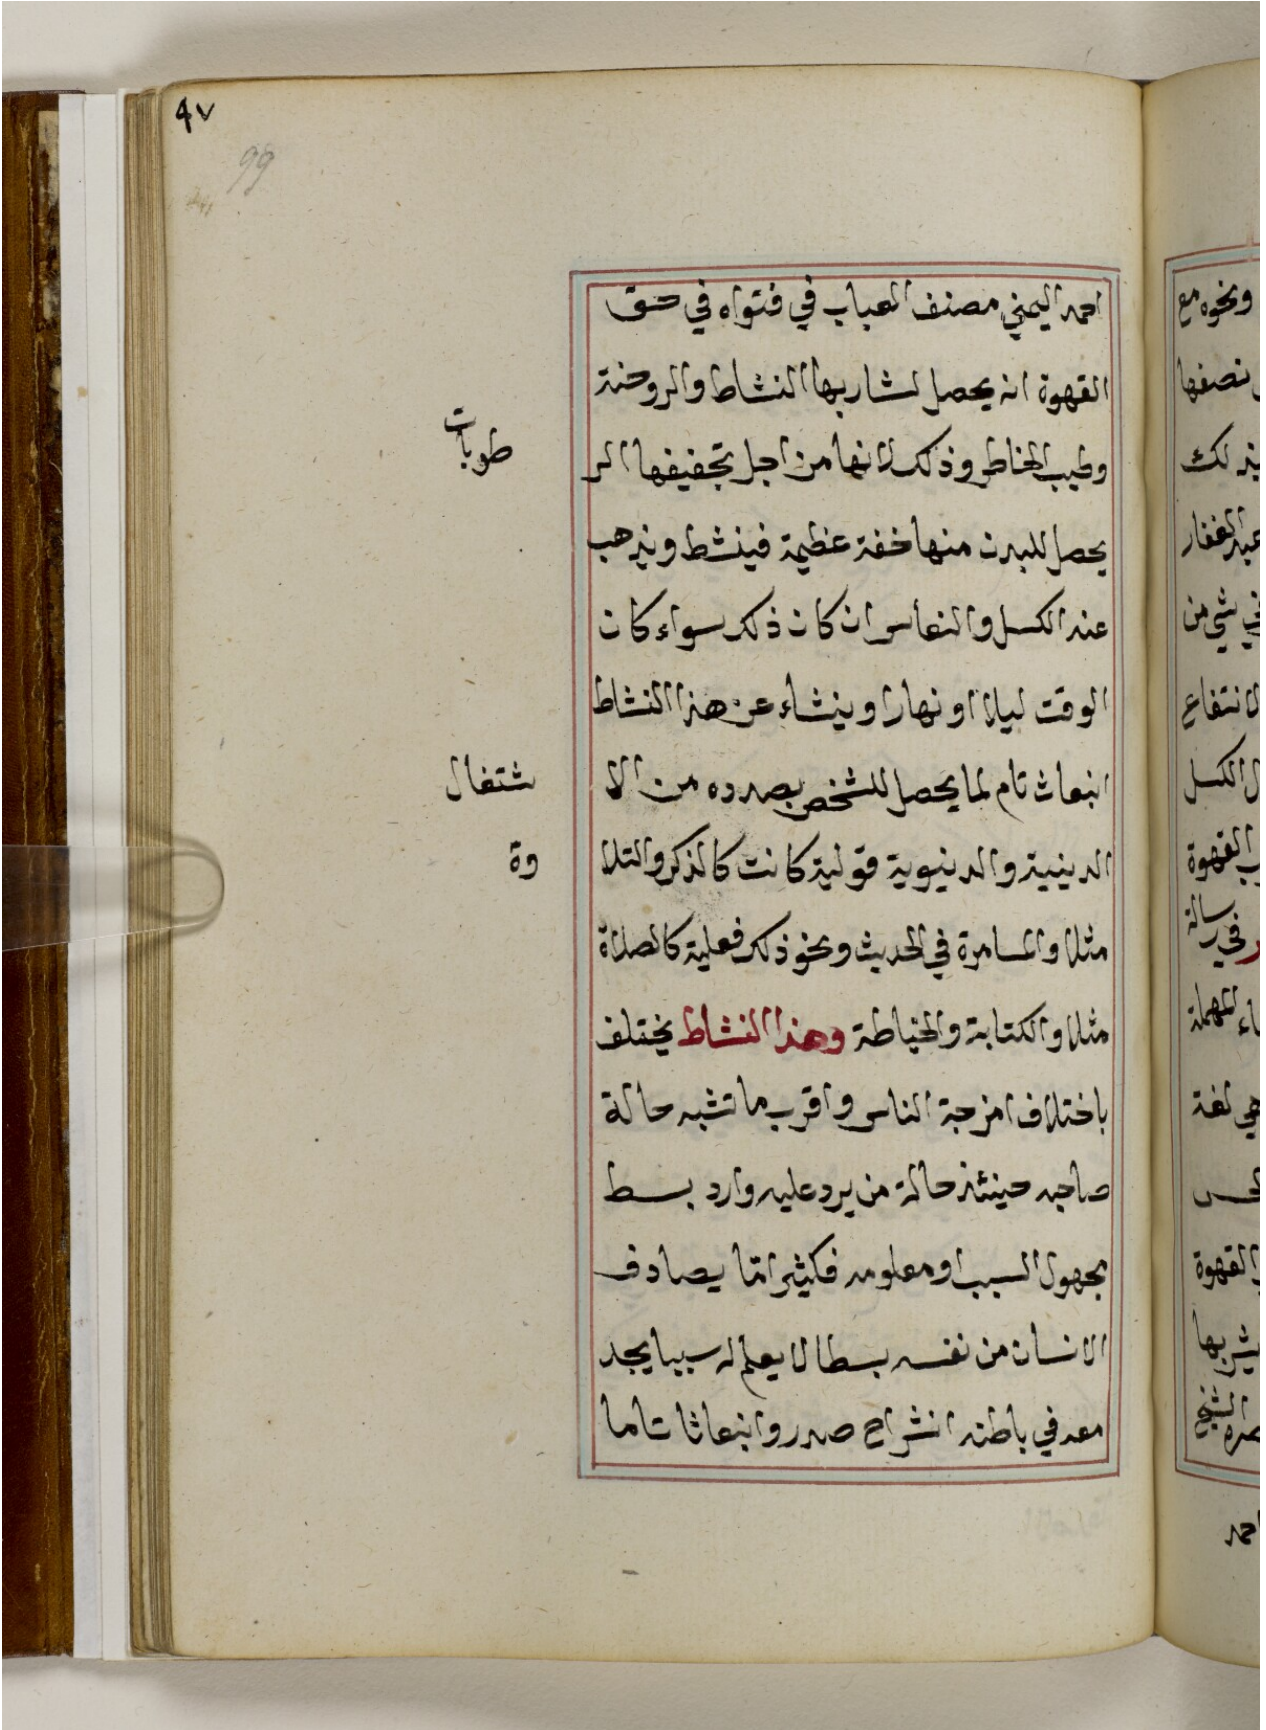 ٩٧
99
احمد اليمني مصنف العباب في فتواه في حق
القهوة انه يحصل لشاربها النشاط والروحنة
وطيب الخاطر وذلك لانها من اجل تجفيفها الر
طوبات
يحصل للبدن منها خفة عظيمة فينشط ويذهب
عنه الكسل والنعاس ان كان ذلك سواء كان
الوقت ليلا او نهارا وينشاء عن هذا النشاط
انبعاث تام لما يحصل للشخص بصدده من الا
شتغال
الدينية والدنيوية قولية كانت كالذكر والتلا
وة
مثلا والمسامرة في الحديث ونحو ذلك فعلية كالصلاة
مثلا والكتابة والخياطة وهذا النشاط يختلف
باختلاف امزجة الناس واقرب ما تشبه حالة
صاحبه حينئذ حالة من يرد عليه وارد بسط
مجهول السبب او معلومه فكثيرا مّا يصادف
الانسان من نفسه بسطا لا يعلم له سببا يجد
معه في باطنه انشراح صدر وانبعاثا تاما
ونحوه مع
نصفها
لك
عبد الغفار
شي من
الانتفاع
الكسل
القهوة
في رسالة
المهملة
هي لغة
القهوة
بشربها
الشيخ
احمد